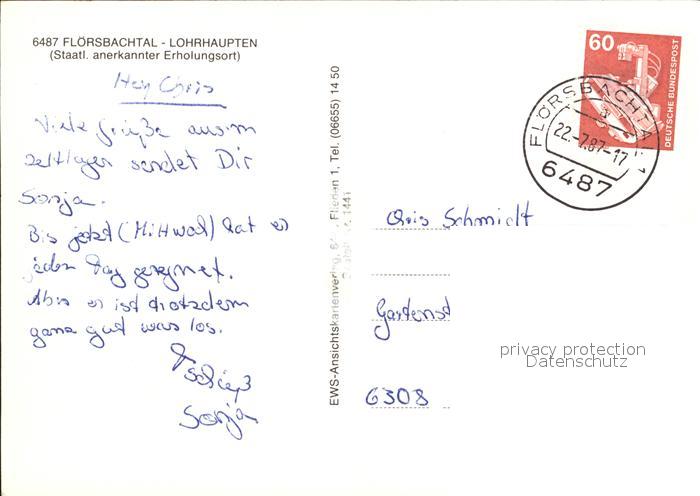 6487 FLÖRSBACHTAL - LOHRHAUPTEN
(Staatl. anerkannter Erholungsort)
Hey Chris
Viele Grüße aus'm
Zeltlager sendet Dir
Sonja.
Bis jetzt (Mittwoch) hat es
jeden Tag geregnet.
Aber es ist trotzdem
ganz gut was los.
Tschüß
Sonja
EWS-Ansichtskartenverlag, Flieden 1, Tel. (06655) 14 50
1441
60
DEUTSCHE BUNDESPOST
FLÖRSBACHTAL 1
a
22.-7.87-17
6487
Chris Schmidt
Gartenst
privacy protection
Datenschutz
6308